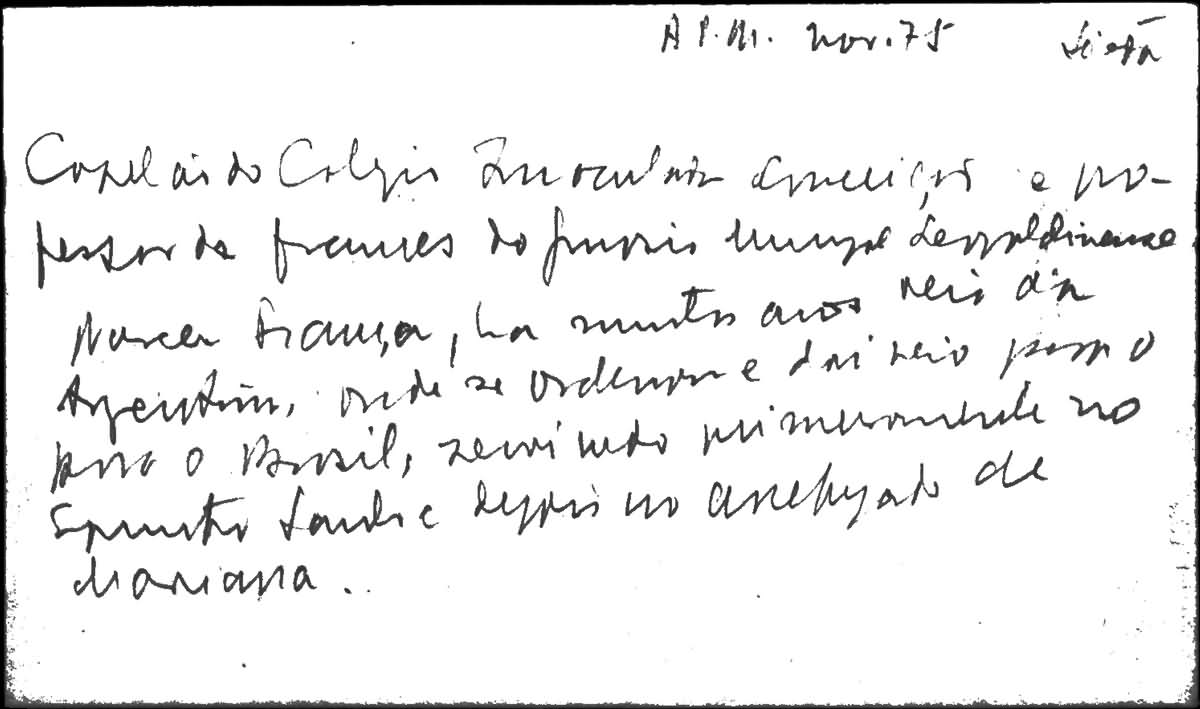 A.P.M. nov. 75
Capelão do Colégio Imaculada Conceição e pro-
fessor de frances do Leopoldinense
Nasceu França, ha muitos anos veio da
Argentina, onde se ordenou e daí veio para o
para o Brasil, servindo primeiramente no
Espirito Santo e depois no arcebispado de
Mariana.